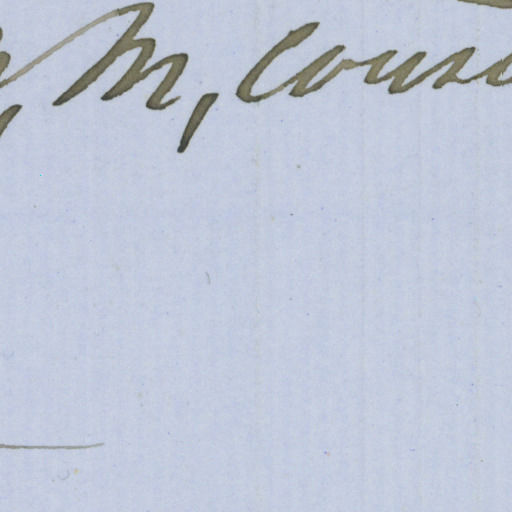 M, Cous